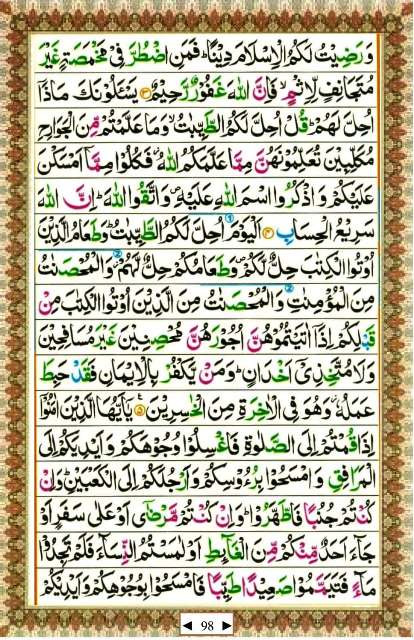 وَرَضِيْتُ لَكُمُ الْاِسْلَامَ دِيْنًا ؕ فَمَنِ اضْطُرَّ فِيْ مَخْمَصَةٍ غَيْرَ
مُتَجَانِفٍ لِّاِثْمٍ ۙ فَاِنَّ اللّٰهَ غَفُوْرٌ رَّحِيْمٌ ﴿۳﴾ يَسْـَٔلُوْنَكَ مَاذَاۤ
اُحِلَّ لَهُمْ ؕ قُلْ اُحِلَّ لَكُمُ الطَّيِّبٰتُ ۙ وَمَا عَلَّمْتُمْ مِّنَ الْجَوَارِحِ
مُكَلِّبِيْنَ تُعَلِّمُوْنَهُنَّ مِمَّا عَلَّمَكُمُ اللّٰهُ ؗ فَكُلُوْا مِمَّاۤ اَمْسَكْنَ
عَلَيْكُمْ وَاذْكُرُوا اسْمَ اللّٰهِ عَلَيْهِ ۪ وَاتَّقُوا اللّٰهَ ؕ اِنَّ اللّٰهَ
سَرِيْعُ الْحِسَابِ ﴿۴﴾ اَلْيَوْمَ اُحِلَّ لَكُمُ الطَّيِّبٰتُ ؕ وَطَعَامُ الَّذِيْنَ
اُوْتُوا الْكِتٰبَ حِلٌّ لَّكُمْ ۪ وَطَعَامُكُمْ حِلٌّ لَّهُمْ ؗ وَالْمُحْصَنٰتُ
مِنَ الْمُؤْمِنٰتِ وَالْمُحْصَنٰتُ مِنَ الَّذِيْنَ اُوْتُوا الْكِتٰبَ مِنْ
قَبْلِكُمْ اِذَاۤ اٰتَيْتُمُوْهُنَّ اُجُوْرَهُنَّ مُحْصِنِيْنَ غَيْرَ مُسَافِحِيْنَ
وَلَا مُتَّخِذِيْۤ اَخْدَانٍ ؕ وَمَنْ يَّكْفُرْ بِالْاِيْمَانِ فَقَدْ حَبِطَ
عَمَلُهٗ ؗ وَهُوَ فِي الْاٰخِرَةِ مِنَ الْخٰسِرِيْنَ ﴿۵﴾ يٰۤاَيُّهَا الَّذِيْنَ اٰمَنُوْۤا
اِذَا قُمْتُمْ اِلَى الصَّلٰوةِ فَاغْسِلُوْا وُجُوْهَكُمْ وَاَيْدِيَكُمْ اِلَى
الْمَرَافِقِ وَامْسَحُوْا بِرُءُوْسِكُمْ وَاَرْجُلَكُمْ اِلَى الْكَعْبَيْنِ ؕ وَاِنْ
كُنْتُمْ جُنُبًا فَاطَّهَّرُوْا ؕ وَاِنْ كُنْتُمْ مَّرْضٰۤى اَوْ عَلٰى سَفَرٍ اَوْ
جَآءَ اَحَدٌ مِّنْكُمْ مِّنَ الْغَآئِطِ اَوْ لٰمَسْتُمُ النِّسَآءَ فَلَمْ تَجِدُوْا
مَآءً فَتَيَمَّمُوْا صَعِيْدًا طَيِّبًا فَامْسَحُوْا بِوُجُوْهِكُمْ وَاَيْدِيْكُمْ
◄ 98 ►